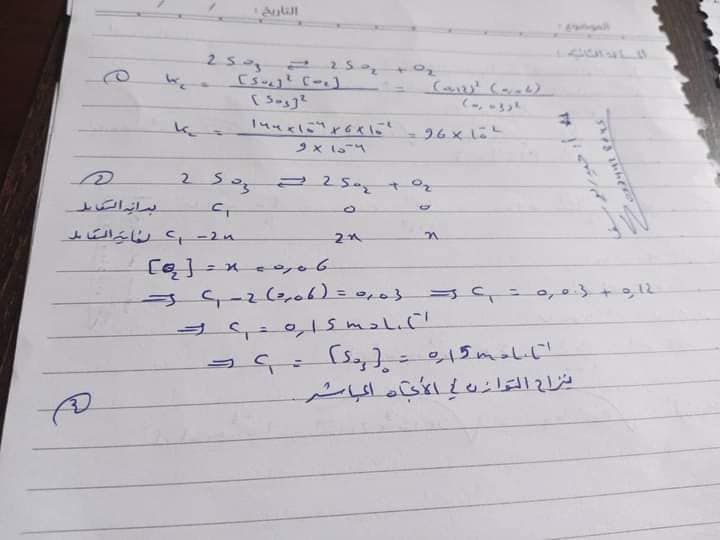 التاريخ : / /
الموضوع :
المسألة الثانية :
2 SO3 ⇌ 2 SO2 + O2
① Kc = [SO2]² [O2] / [SO3]² = (0,12)² (0,06) / (0,03)²
Kc = 144 × 10⁻⁴ × 6 × 10⁻² / 9 × 10⁻⁴ = 96 × 10⁻²
② 2 SO3 ⇌ 2 SO2 + O2
بداية التفاعل C1 0 0
نهاية التفاعل C1 - 2x 2x x
[O2] = x = 0,06
⇒ C1 - 2(0,06) = 0,03 ⇒ C1 = 0,03 + 0,12
⇒ C1 = 0,15 mol.L⁻¹
⇒ C1 = [SO3]₀ = 0,15 mol.L⁻¹
③ ينزاح التوازن في الاتجاه المباشر